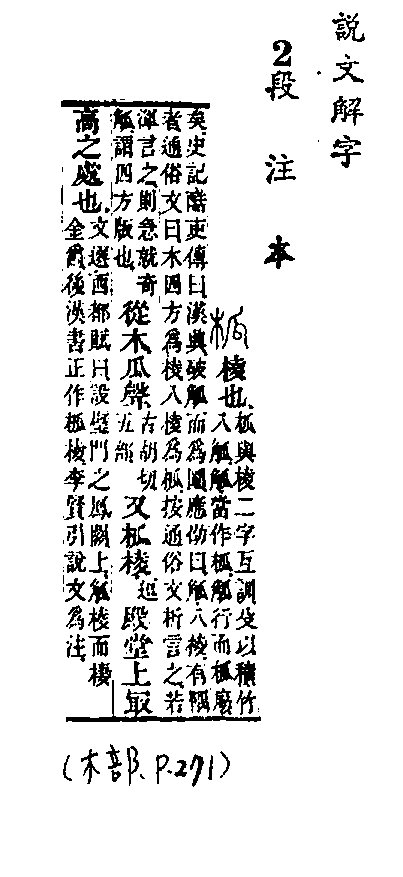 說文解字
2段 注 本
柧 棱也、柧與棱二字互訓殳以積竹
八觚、觚當作柧、觚行而柧廢
矣、史記酷吏傳曰、漢興破觚而爲圜、應劭曰、觚、八棱、有隅
者、通俗文曰、木四方爲棱、八棱爲柧、按通俗文析言之、若
渾言之、則急就奇
觚、謂四方版也、 從木瓜聲、 古胡切、
五部、 又柧棱、 殿堂上最
高之處也、 文選西都賦曰、設璧門之鳳闕、上觚棱而棲
金爵、後漢書正作柧棱、李賢引說文爲注、
(木部、P.271)